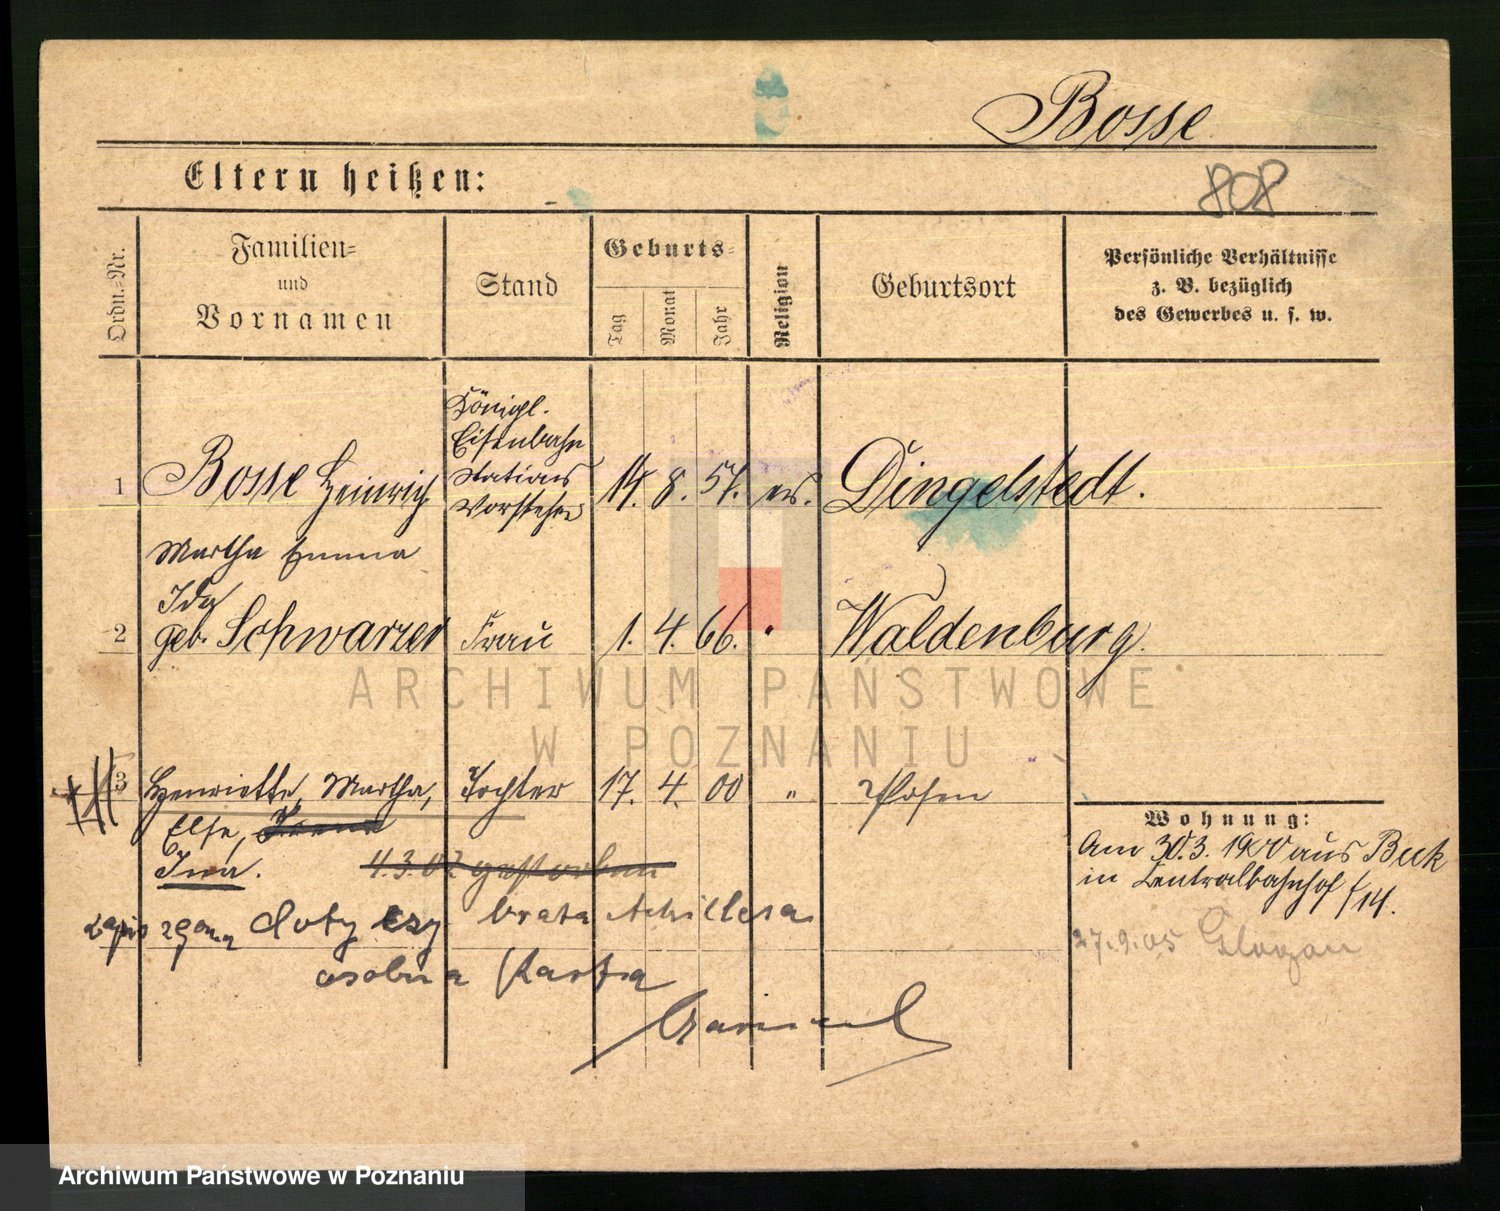 Bosse
Eltern heißen:
808
Ordn.-Nr.
Familien-
und
Vornamen
Stand
Geburts-
Tag
Monat
Jahr
Religion
Geburtsort
Persönliche Verhältnisse
z. B. bezüglich
des Gewerbes u. s. w.
Königl.
Eisenbahn
Stations
Vorsteher
1 Bosse Heinrich 14. 8. 57. ev. Dingelstedt.
Martha Emma
Ida
2 geb. Schwarzer Frau 1. 4. 66. " Waldenburg.
ARCHIWUM PAŃSTWOWE
W POZNANIU
3 Henriette, Martha, Tochter 17. 4. 00 " Posen
Else,
Ina.
4.3.02 gestorben
zapis zgonu dotyczy brata Achillesa
osobna Karta
Wohnung:
Am 30.3. 1900 aus
in Centralbahnhof f/14.
27.9.05 Glogau
Archiwum Państwowe w Poznaniu